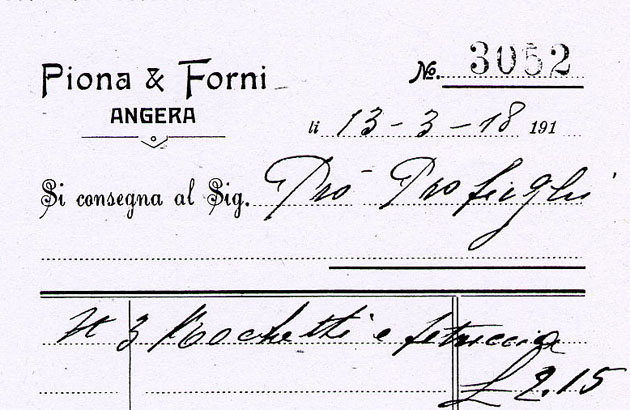 Piona & Forni
ANGERA
No. 3052
li 13-3-18 191
Si consegna al Sig. Pro Profughi
N 3 Rochetti e fetuccia
£ 2.15